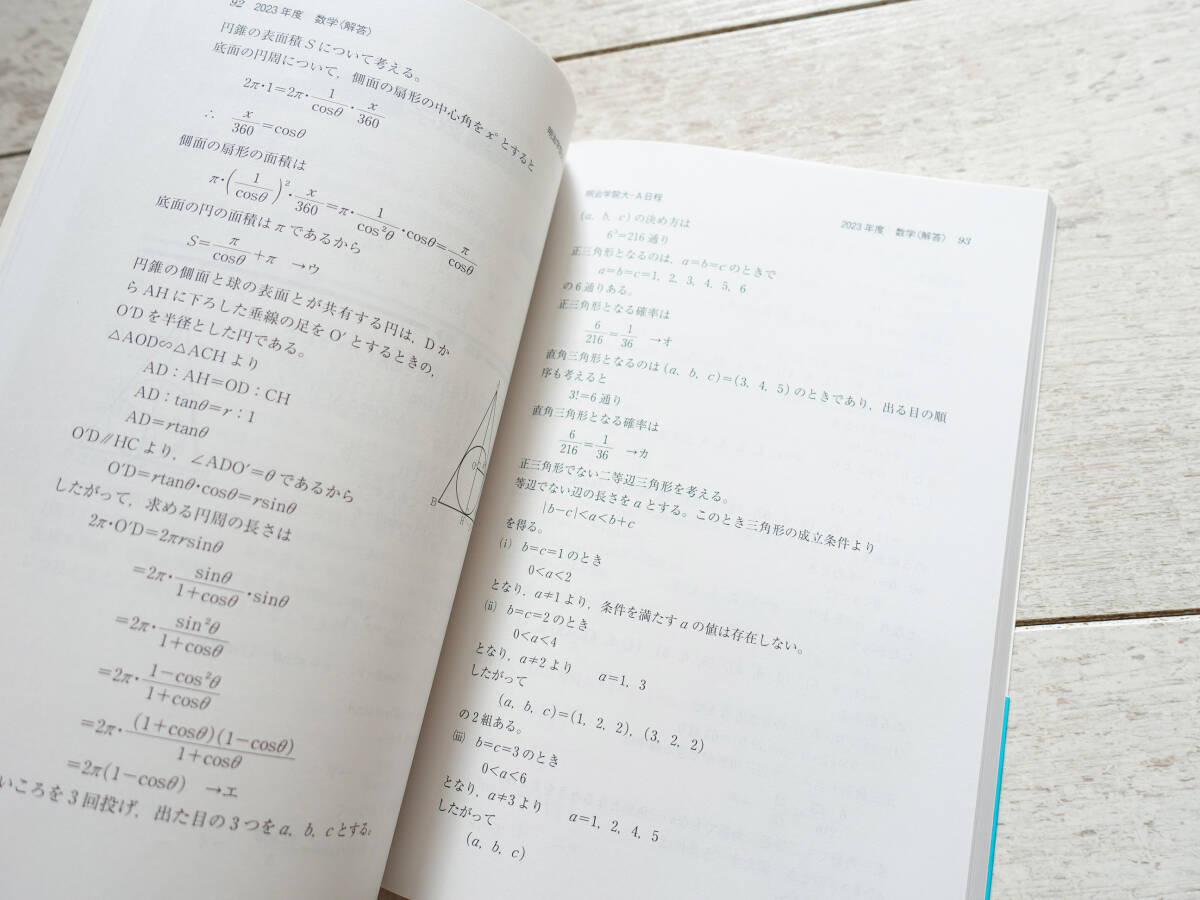 92 2023年度 数学〈解答〉
円錐の表面積Sについて考える。
底面の円周について，側面の扇形の中心角をx°とすると
2π・1=2π・1/cosθ・x/360
∴ x/360=cosθ
側面の扇形の面積は
π・(1/cosθ)²・x/360=π・1/cos²θ・cosθ=π/cosθ
底面の円の面積はπであるから
S=π/cosθ+π →ウ
円錐の側面と球の表面とが共有する円は，Dか
らAHに下ろした垂線の足をO′とするときの，
O′Dを半径とした円である。
△AOD∽△ACHより
AD：AH=OD：CH
AD：tanθ=r：1
AD=rtanθ
O′D∥HCより，∠ADO′=θであるから
O′D=rtanθ・cosθ=rsinθ
したがって，求める円周の長さは
2π・O′D=2πrsinθ
=2π・sinθ/1+cosθ・sinθ
=2π・sin²θ/1+cosθ
=2π・1-cos²θ/1+cosθ
=2π・(1+cosθ)(1-cosθ)/1+cosθ
=2π(1-cosθ) →エ
いころを3回投げ，出た目の3つをa，b，cとする。
B
H
明治学院大-A日程
2023年度 数学〈解答〉 93
(a，b，c)の決め方は
6³=216通り
正三角形となるのは，a=b=cのときで
a=b=c=1，2，3，4，5，6
の6通りある。
正三角形となる確率は
6/216=1/36 →オ
直角三角形となるのは(a，b，c)=(3，4，5)のときであり，出る目の順
序も考えると
3!=6通り
直角三角形となる確率は
6/216=1/36 →カ
正三角形でない二等辺三角形を考える。
等辺でない辺の長さをaとする。このとき三角形の成立条件より
|b-c|<a<b+c
を得る。
(i) b=c=1のとき
0<a<2
となり，a≠1より，条件を満たすaの値は存在しない。
(ii) b=c=2のとき
0<a<4
となり，a≠2より a=1，3
したがって
(a，b，c)=(1，2，2)，(3，2，2)
の2組ある。
(iii) b=c=3のとき
0<a<6
となり，a≠3より a=1，2，4，5
したがって
(a，b，c)